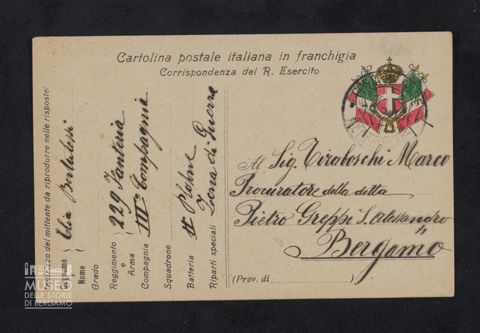 Cartolina postale italiana in franchigia
Corrispondenza del R. Esercito
Indirizzo del mittente da riprodurre nelle risposte:
Cognome
Nome
Elia
Grado
Reggimento e Arma
229 Fanteria
Compagnia
IIIª Compagnia
Squadrone
Batteria
Plotone
Riparti speciali
Zona di Guerra
Al Sig. Tiraboschi Marco
Procuratore della ditta
Pietro Greppe S. Alessandro
Bergamo
(Prov. di )
MUSEO
DELLE STORIE
DI BERGAMO